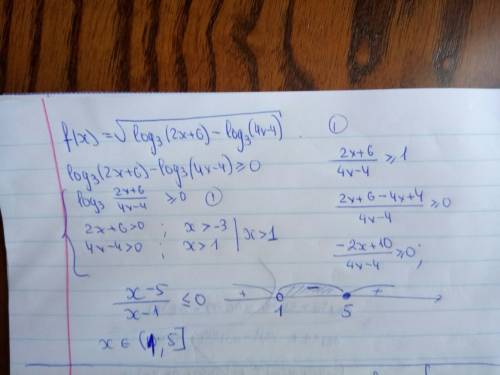 f(x) = √(log₃(2x+6) - log₃(4x-4)) .
log₃(2x+6) - log₃(4x-4) ≥ 0
{ log₃ (2x+6)/(4x-4) ≥ 0 ①
2x+6>0 ; x>-3 | x>1
4x-4>0 ; x>1
①
(2x+6)/(4x-4) ≥ 1
(2x+6-4x+4)/(4x-4) ≥ 0
(-2x+10)/(4x-4) ≥ 0 ;
(x-5)/(x-1) ≤ 0
+ - +
1 5
x ∈ (1, 5]